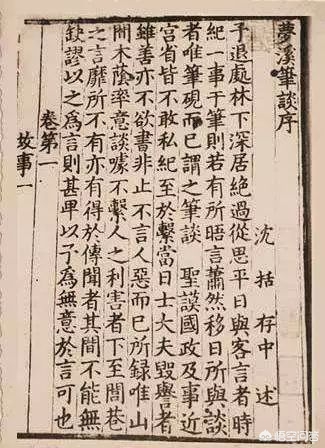 夢溪筆談序
沈括存中述
予退處林下深居絕過從思平日與客言者時
紀一事于筆則若有所晤言蕭然移日所與談
者唯筆硯而已謂之筆談 聖謨國政及事近
宮省皆不敢私紀至於繫當日士大夫毀譽者
雖善亦不欲書非止不言人惡而已所錄唯山
間木蔭率意談噱不繫人之利害者下至閭巷
之言靡所不有亦有得於傳聞者其間不能無
缺謬以之為言則甚卑以予為無意於言可也
卷第一
故事一
悟空问答